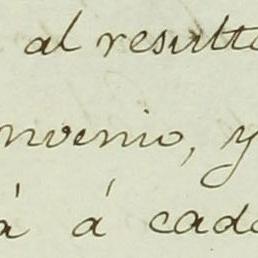 al resulta
nvenio, y
á á cada